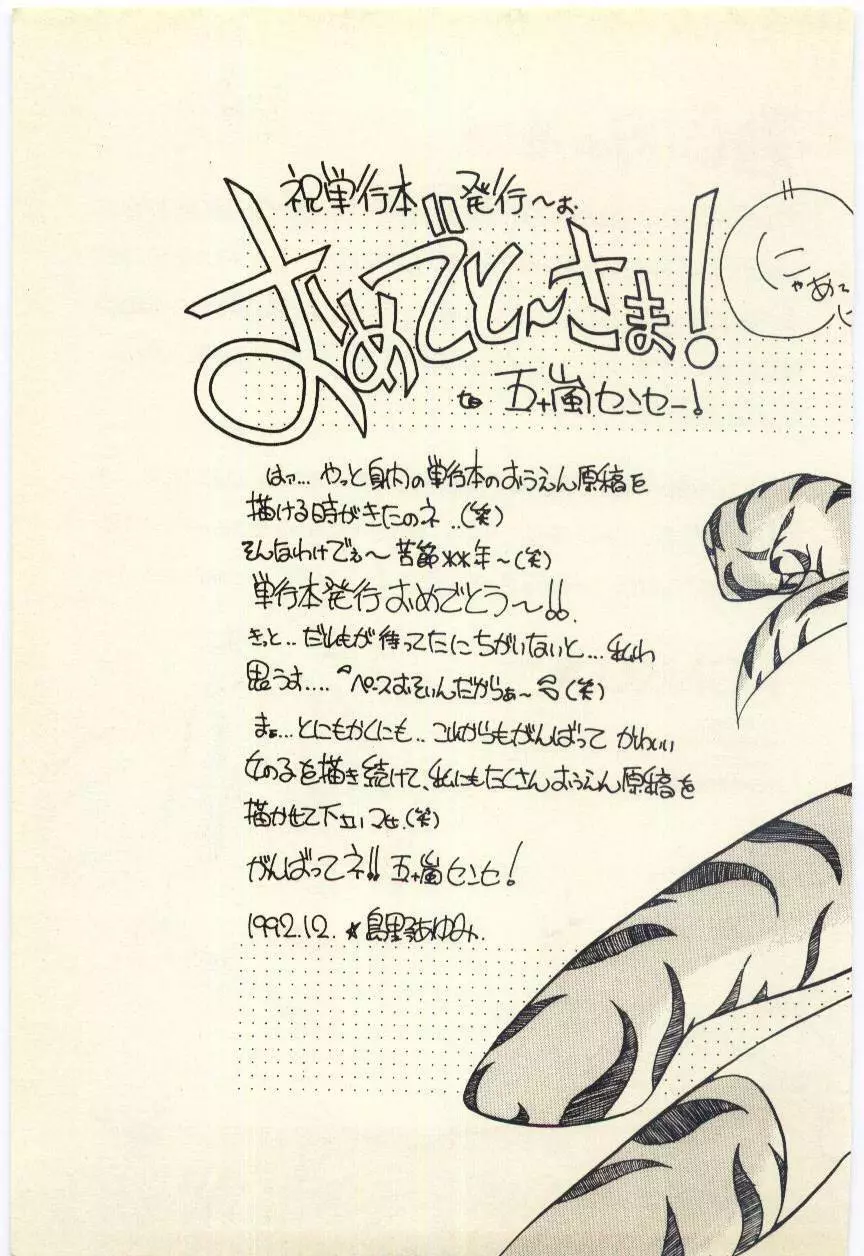 祝単行本 発行〜ぉ
おめでと〜さま!
to 五十嵐センセー!
にゃあ
はァ… やっと身内の単行本のおうえん原稿を
描ける時がきたのネ..(笑)
そんなわけでぇ〜 苦節××年〜(笑)
単行本発行 おめでとう〜!!
きっと.. だれもが待ってたにちがいないと… 私わ
思うす.... ペースおそいんだからぁ〜 (笑)
まぁ…とにもかくにも.. これからもがんばって かわいい
女の子を描き続けて、私にもたくさんおうえん原稿を
描かせて下さいマセ.(笑)
がんばってネ!! 五十嵐センセ!
1992.12. ☆島野あゆみ.